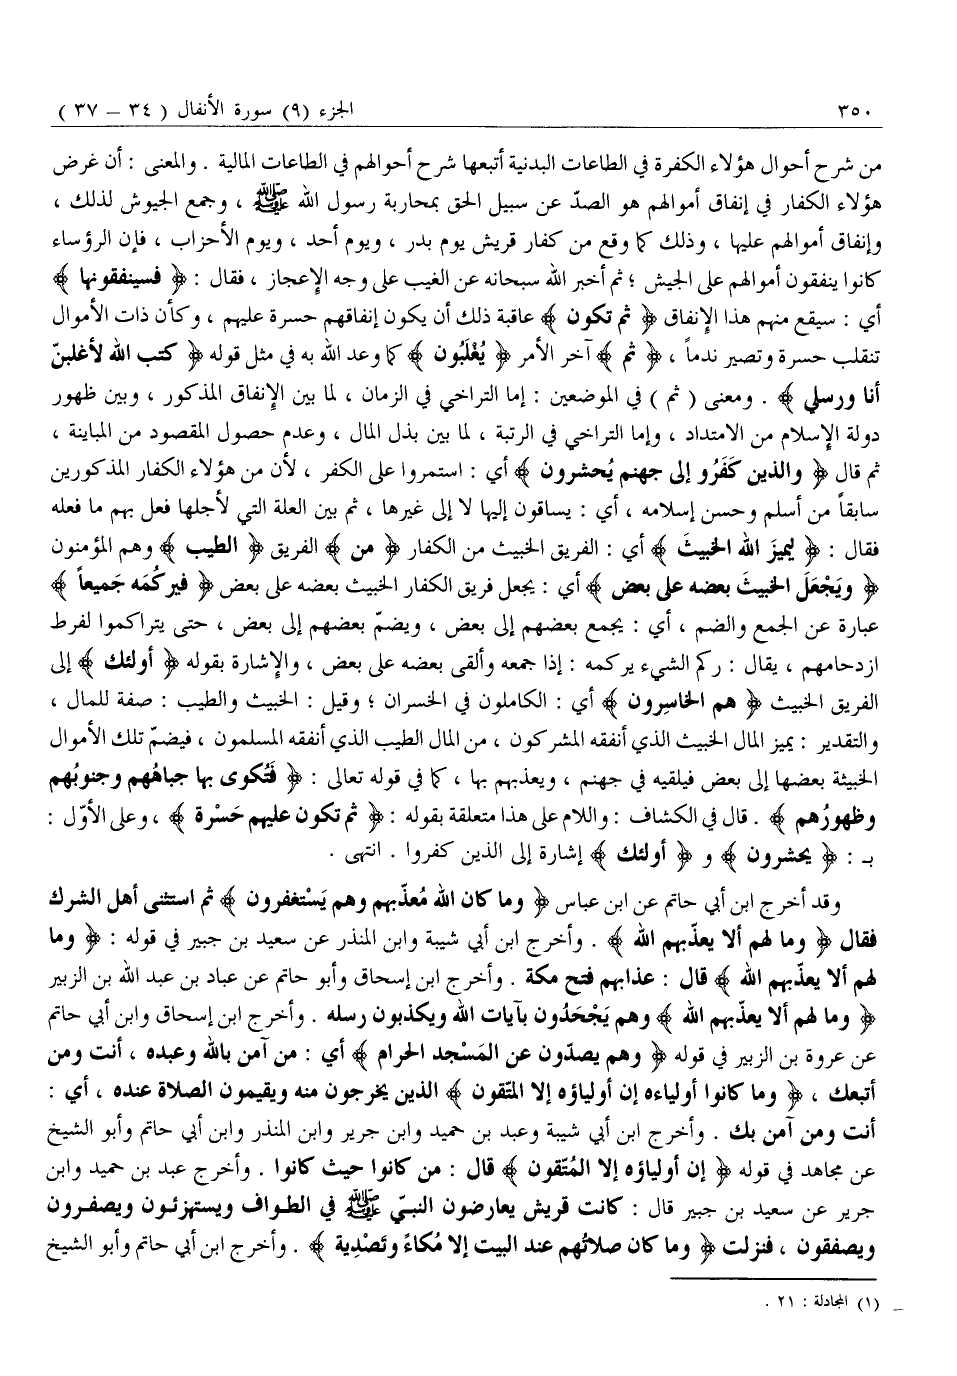 ٣٥٠ الجزء (٩) سورة الأنفال ( ٣٤ – ٣٧ )
من شرح أحوال هؤلاء الكفرة في الطاعات البدنية أتبعها شرح أحوالهم في الطاعات المالية . والمعنى : أن غرض
هؤلاء الكفار في إنفاق أموالهم هو الصدّ عن سبيل الحق بمحاربة رسول الله ﷺ ، وجمع الجيوش لذلك ،
وإنفاق أموالهم عليها ، وذلك كما وقع من كفار قريش يوم بدر ، ويوم أحد ، ويوم الأحزاب ، فإن الرؤساء
كانوا ينفقون أموالهم على الجيش ؛ ثم أخبر الله سبحانه عن الغيب على وجه الإعجاز ، فقال : ﴿ فسينفقونها ﴾
أي : سيقع منهم هذا الإنفاق ﴿ ثم تكون ﴾ عاقبة ذلك أن يكون إنفاقهم حسرة عليهم ، وكأن ذات الأموال
تنقلب حسرة وتصير ندماً ، ﴿ ثم ﴾ آخر الأمر ﴿ يُغْلَبُون ﴾ كما وعد الله به في مثل قوله ﴿ كتب الله لأغلبنّ
أنا ورسلي ﴾ . ومعنى ( ثم ) في الموضعين : إما التراخي في الزمان ، لما بين الإنفاق المذكور ، وبين ظهور
دولة الإسلام من الامتداد ، وإما التراخي في الرتبة ، لما بين بذل المال ، وعدم حصول المقصود من المباينة ،
ثم قال ﴿ والذين كَفَرُو إلى جهنم يُحشرون ﴾ أي : استمروا على الكفر ، لأن من هؤلاء الكفار المذكورين
سابقاً من أسلم وحسن إسلامه ، أي : يساقون إليها لا إلى غيرها ، ثم بين العلة التي لأجلها فعل بهم ما فعله
فقال : ﴿ ليميز الله الخبيثَ ﴾ أي : الفريق الخبيث من الكفار ﴿ من ﴾ الفريق ﴿ الطيب ﴾ وهم المؤمنون
﴿ ويَجْعَلَ الخبيثَ بعضه على بعض ﴾ أي : يجعل فريق الكفار الخبيث بعضه على بعض ﴿ فيركُمَه جَميعاً ﴾
عبارة عن الجمع والضم ، أي : يجمع بعضهم إلى بعض ، ويضمّ بعضهم إلى بعض ، حتى يتراكموا لفرط
ازدحامهم ، يقال : ركم الشيء يركمه : إذا جمعه وألقى بعضه على بعض ، والإشارة بقوله ﴿ أولئك ﴾ إلى
الفريق الخبيث ﴿ هم الخاسِرون ﴾ أي : الكاملون في الخسران ؛ وقيل : الخبيث والطيب : صفة للمال ،
والتقدير : يميز المال الخبيث الذي أنفقه المشركون ، من المال الطيب الذي أنفقه المسلمون ، فيضمّ تلك الأموال
الخبيثة بعضها إلى بعض فيلقيه في جهنم ، ويعذبهم بها ، كما في قوله تعالى : ﴿ فَتُكوى بها جباهُهم وجنوبُهم
وظهورُهم ﴾ . قال في الكشاف : واللام على هذا متعلقة بقوله : ﴿ ثم تكون عليهم حَسْرة ﴾ ، وعلى الأوّل :
بـ : ﴿ يحشرون ﴾ و ﴿ أولئك ﴾ إشارة إلى الذين كفروا . انتهى .
وقد أخرج ابن أبي حاتم عن ابن عباس ﴿ وما كان الله مُعذّبهم وهم يَسْتغفرون ﴾ ثم استثنى أهل الشرك
فقال ﴿ وما لهم ألا يعذّبهم الله ﴾ . وأخرج ابن أبي شيبة وابن المنذر عن سعيد بن جبير في قوله : ﴿ وما
لهم ألا يعذّبهم الله ﴾ قال : عذابهم فتح مكة . وأخرج ابن إسحاق وأبو حاتم عن عباد بن عبد الله بن الزبير
﴿ وما لهم ألا يعذّبهم الله ﴾ وهم يَجْحَدُون بآيات الله ويكذبون رسله . وأخرج ابن إسحاق وابن أبي حاتم
عن عروة بن الزبير في قوله ﴿ وهم يصدّون عن المَسْجد الحرام ﴾ أي : من آمن بالله وعبده ، أنت ومن
أتبعك ، ﴿ وما كانوا أولياءه إن أولياؤه إلا المتّقون ﴾ الذين يخرجون منه ويقيمون الصلاة عنده ، أي :
أنت ومن آمن بك . وأخرج ابن أبي شيبة وعبد بن حميد وابن جرير وابن المنذر وابن أبي حاتم وأبو الشيخ
عن مجاهد في قوله ﴿ إن أولياؤه إلا المُتّقون ﴾ قال : من كانوا حيث كانوا . وأخرج عبد بن حميد وابن
جرير عن سعيد بن جبير قال : كانت قريش يعارضون النبيّ ﷺ في الطواف ويستهزئون ويصفرون
ويصفقون ، فنزلت ﴿ وما كان صلاتُهم عند البيت إلا مُكاءً وتَصْدِية ﴾ . وأخرج ابن أبي حاتم وأبو الشيخ
(١) المجادلة : ٢١ .